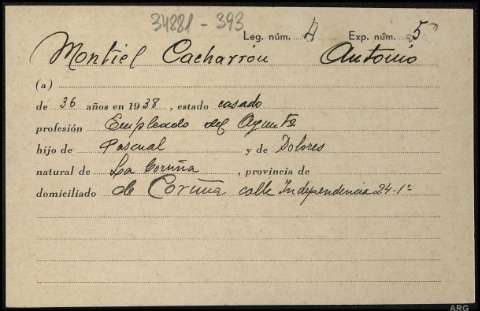 34881 - 393
Leg. núm. 4 Exp. núm. 5
Montiel Cacharrón Antonio
(a)
de 36 años en 1938, estado casado
profesión Empleado del Ayuntº
hijo de Pascual y de Dolores
natural de La Coruña, provincia de
domiciliado de Coruña calle Independencia 24-1º
ARG